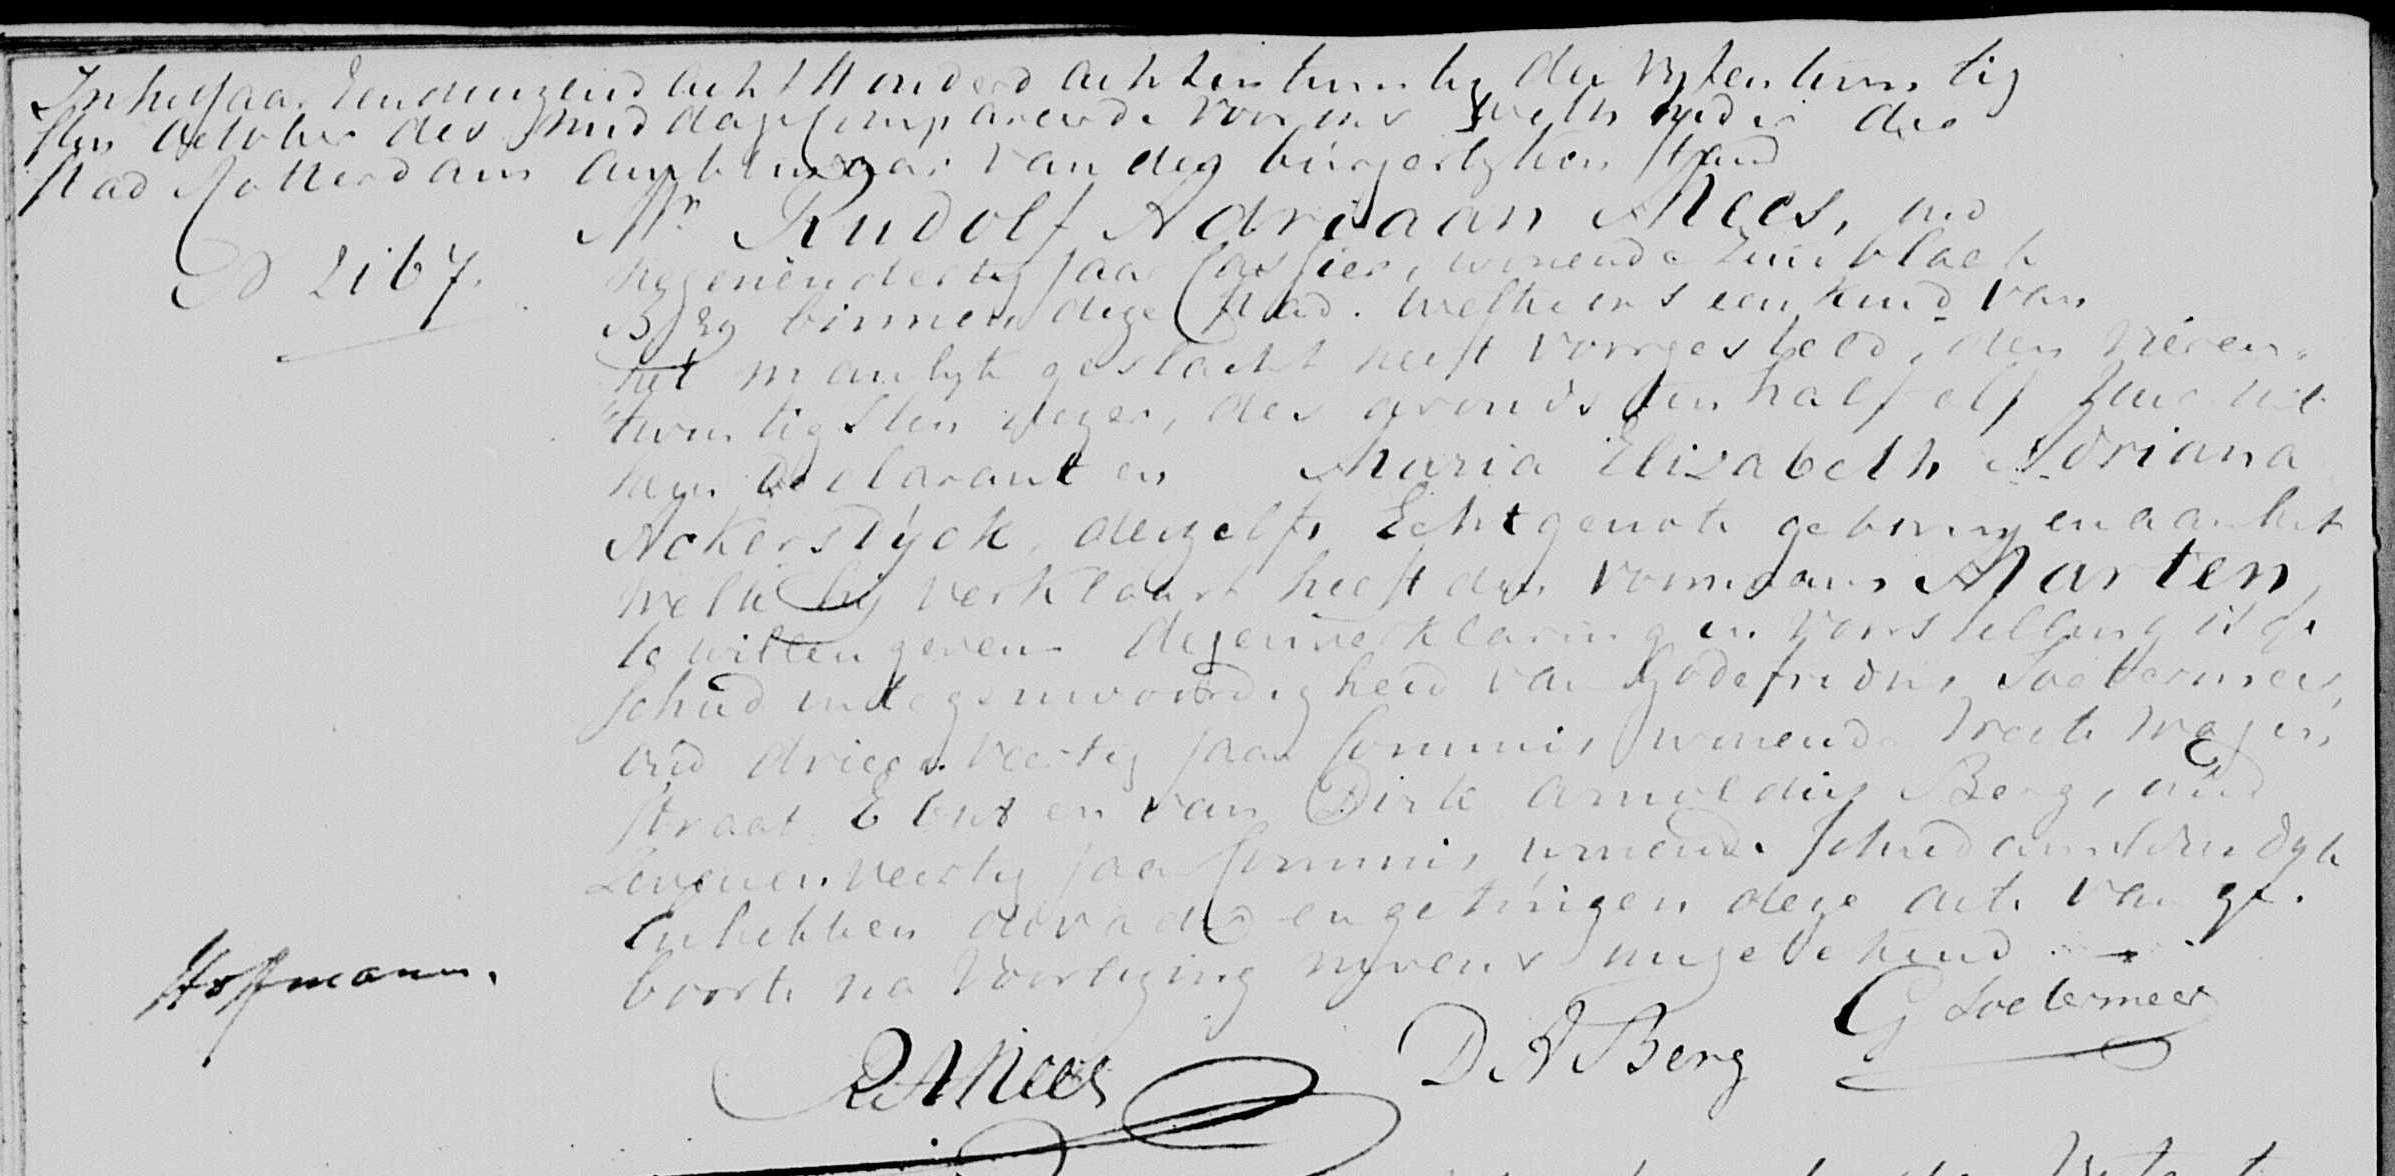 In het Jaar Eenduizend acht Honderd acht en twintig den vyfentwintig
sten October des middags compareerde voor ons Wethouder der
stad Rotterdam ambtenaar van den burgerlyken stand
Mr Rudolf Adriaan Mees, oud
No 2167. negenëndertig jaar Cassier, wonende Zuidblaak
B 329 binnen deze stad. welke ons een kind van
het manlyk geslacht heeft voorgesteld, den vieren-
twintigsten dezer, des avonds ten half elf Ure uit
hem declarant en Maria Elizabeth Adriana
Ackersdyck, deszelfs Echtgenote geboren, en aan het
welk hy verklaart heeft den voornaam Marten,
te willen geven. deze verklaring en voorstelling is ge
schied in tegenwoordigheid van Godefridus Soetermeer,
oud drieenveertig jaar Commis, wonende Wagen
straat E en van Dirk Arnoldus Berg, oud
zevenenveertig jaar Commis, wonende Schiedamschendyk
en hebben de vader en getuigen deze acte van ge-
boorte na voorlezing nevens ons getekend
Hoffmann.
G Soetermeer
RA Mees D A Berg